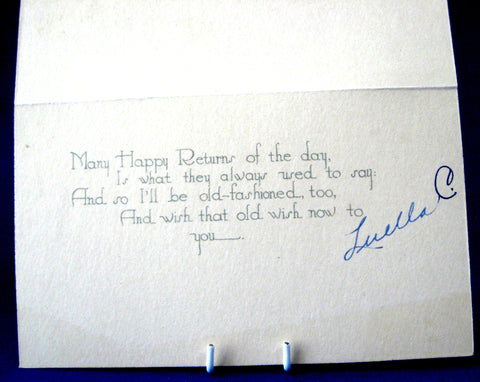 Many Happy Returns of the day,
Is what they always used to say:
And so I'll be old-fashioned, too,
And wish that old wish now to
you___.
Luella C.